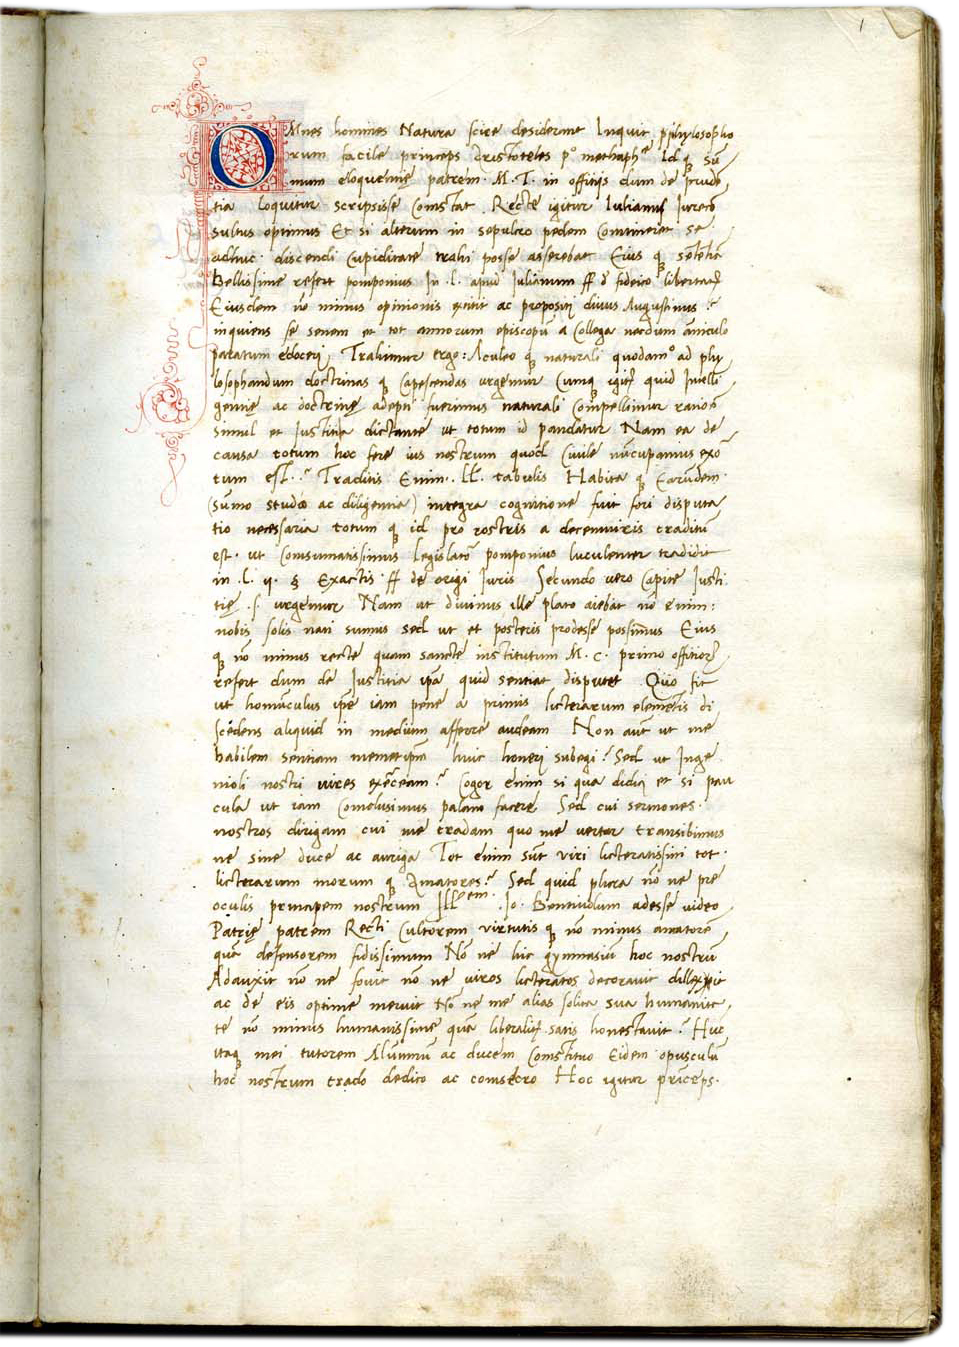 1
OMnes homines Natura scire desiderant Inquit phylosopho
rum facile princeps Aristoteles p° methaphᵉ Id q̨ Sū
mum eloquentię patrem · M · T · in offitijs dum de prudē,
tia loquitur scripsisse Constat . Recte igitur Iulianus Iurecō
sultus optimus Et si alterum in sepulcro pedem Commeret se
adhuc discendi Cupiditate trahi posse asserebat Eius q̨ sētētiā
Bellissime refert pomponius In .l. apud Iulianum ff d fideico libertatꝫ
Eiusdem nō minus opinionis extitit ac propositi divus Augustinus :
inquiens se senem et tot annorum episcopū a Collega necdum āniculo
paratum edoceri, Trahimur ergo : Aculeo q̨ naturali quodam° ad phy
losophandum doctrinas q̨ Capescendas urgemur Cumq̨ igitꝫ quid Intelli
gentię ac doctrinę adepti fuerimus naturali Compellimur rationē
simul et Iustitia dictante ut totum id pandatur Nam ea de
causa totum hoc fere ius nostrum quod Civile nūcupamus exo
tum est . Traditis Enim .. ll. tabulis Habita q̨ Earundem
(sūmo studio ac diligentia) integra cognitione fuit fori disputa
tio necessaria totum q̨ id pro rostris a decemviris traditū
est . ut Consumatissimus Legislator pomponius luculenter tradidit
in .l. ij. § Exactis ff de origi Iuris Secundo vero Capite Iusti
tię .s. urgemur Nam ut divinus ille plato aiebat nō enim :
nobis solis nati sumus sed ut et posteris prodesse possimus Eius
q̨ nō minus recte quam sancte institutum M . C . primo offitioꝝ
refert dum de Iustitia ipā quid sentiat disputet Quo fit
ut homūculus ipē iam pene a primis licterarum elemētis di
scēdens aliquid in medium afferre audeam Non aut ut me
habilem sentiam memetipm huic honeri subegi ? Sed ut Inge
nioli nostri vires exērceam ? Cogor enim si qua didici et si pau
cula ut iam Conclusimus palam facere Sed cui sermones .
nostros dirigam cui me tradam quo me vertar transibimus
ne sine duce ac auriga Tot enim sūt viri licteratissimi tot .
licterarum morum q̨ Amatores ? Sed quid plura nō ne pre
oculis principem nostrum Illᵉᵐ . Io. Bentivolum adesse video
Patrię patrem Recti Cultorem virtutis q̨ nō minus amatorē,
quā defensorem fidissimum Nō ne hic gymnasiū hoc nostrū
Adauxit nō ne fovit nō ne viros licteratos decoravit dillexit
ac de eis optime meruit Nō ne me alias solita sua humanita,
te nō minus humanissime quā liberalitꝫ satis honestavit ? Huc
itaq̨ mei tutorem Alumnū ac ducem Constituo Eidem opusculū
hoc nostrum trado dedico ac consecro Hoc igitur prīceps .